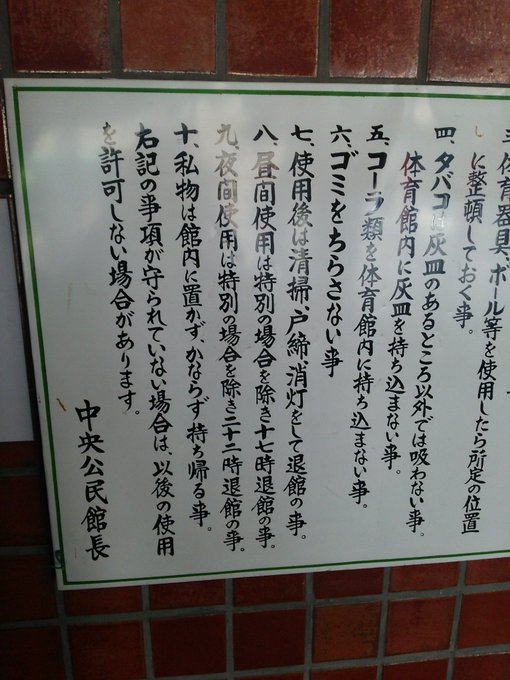 三、体育器具、ボール等を使用したら所定の位置
に整頓しておく事。
四、タバコは灰皿のあるところ以外では吸わない事。
体育館内に灰皿を持ち込まない事。
五、コーラ類を体育館内に持ち込まない事。
六、ゴミをちらさない事
七、使用後は清掃、戸締、消灯をして退館の事。
八、昼間使用は特別の場合を除き十七時退館の事。
九、夜間使用は特別の場合を除き二十二時退館の事。
十、私物は館内に置かず、かならず持ち帰る事。
右記の事項が守られていない場合は、以後の使用
を許可しない場合があります。
中央公民館長